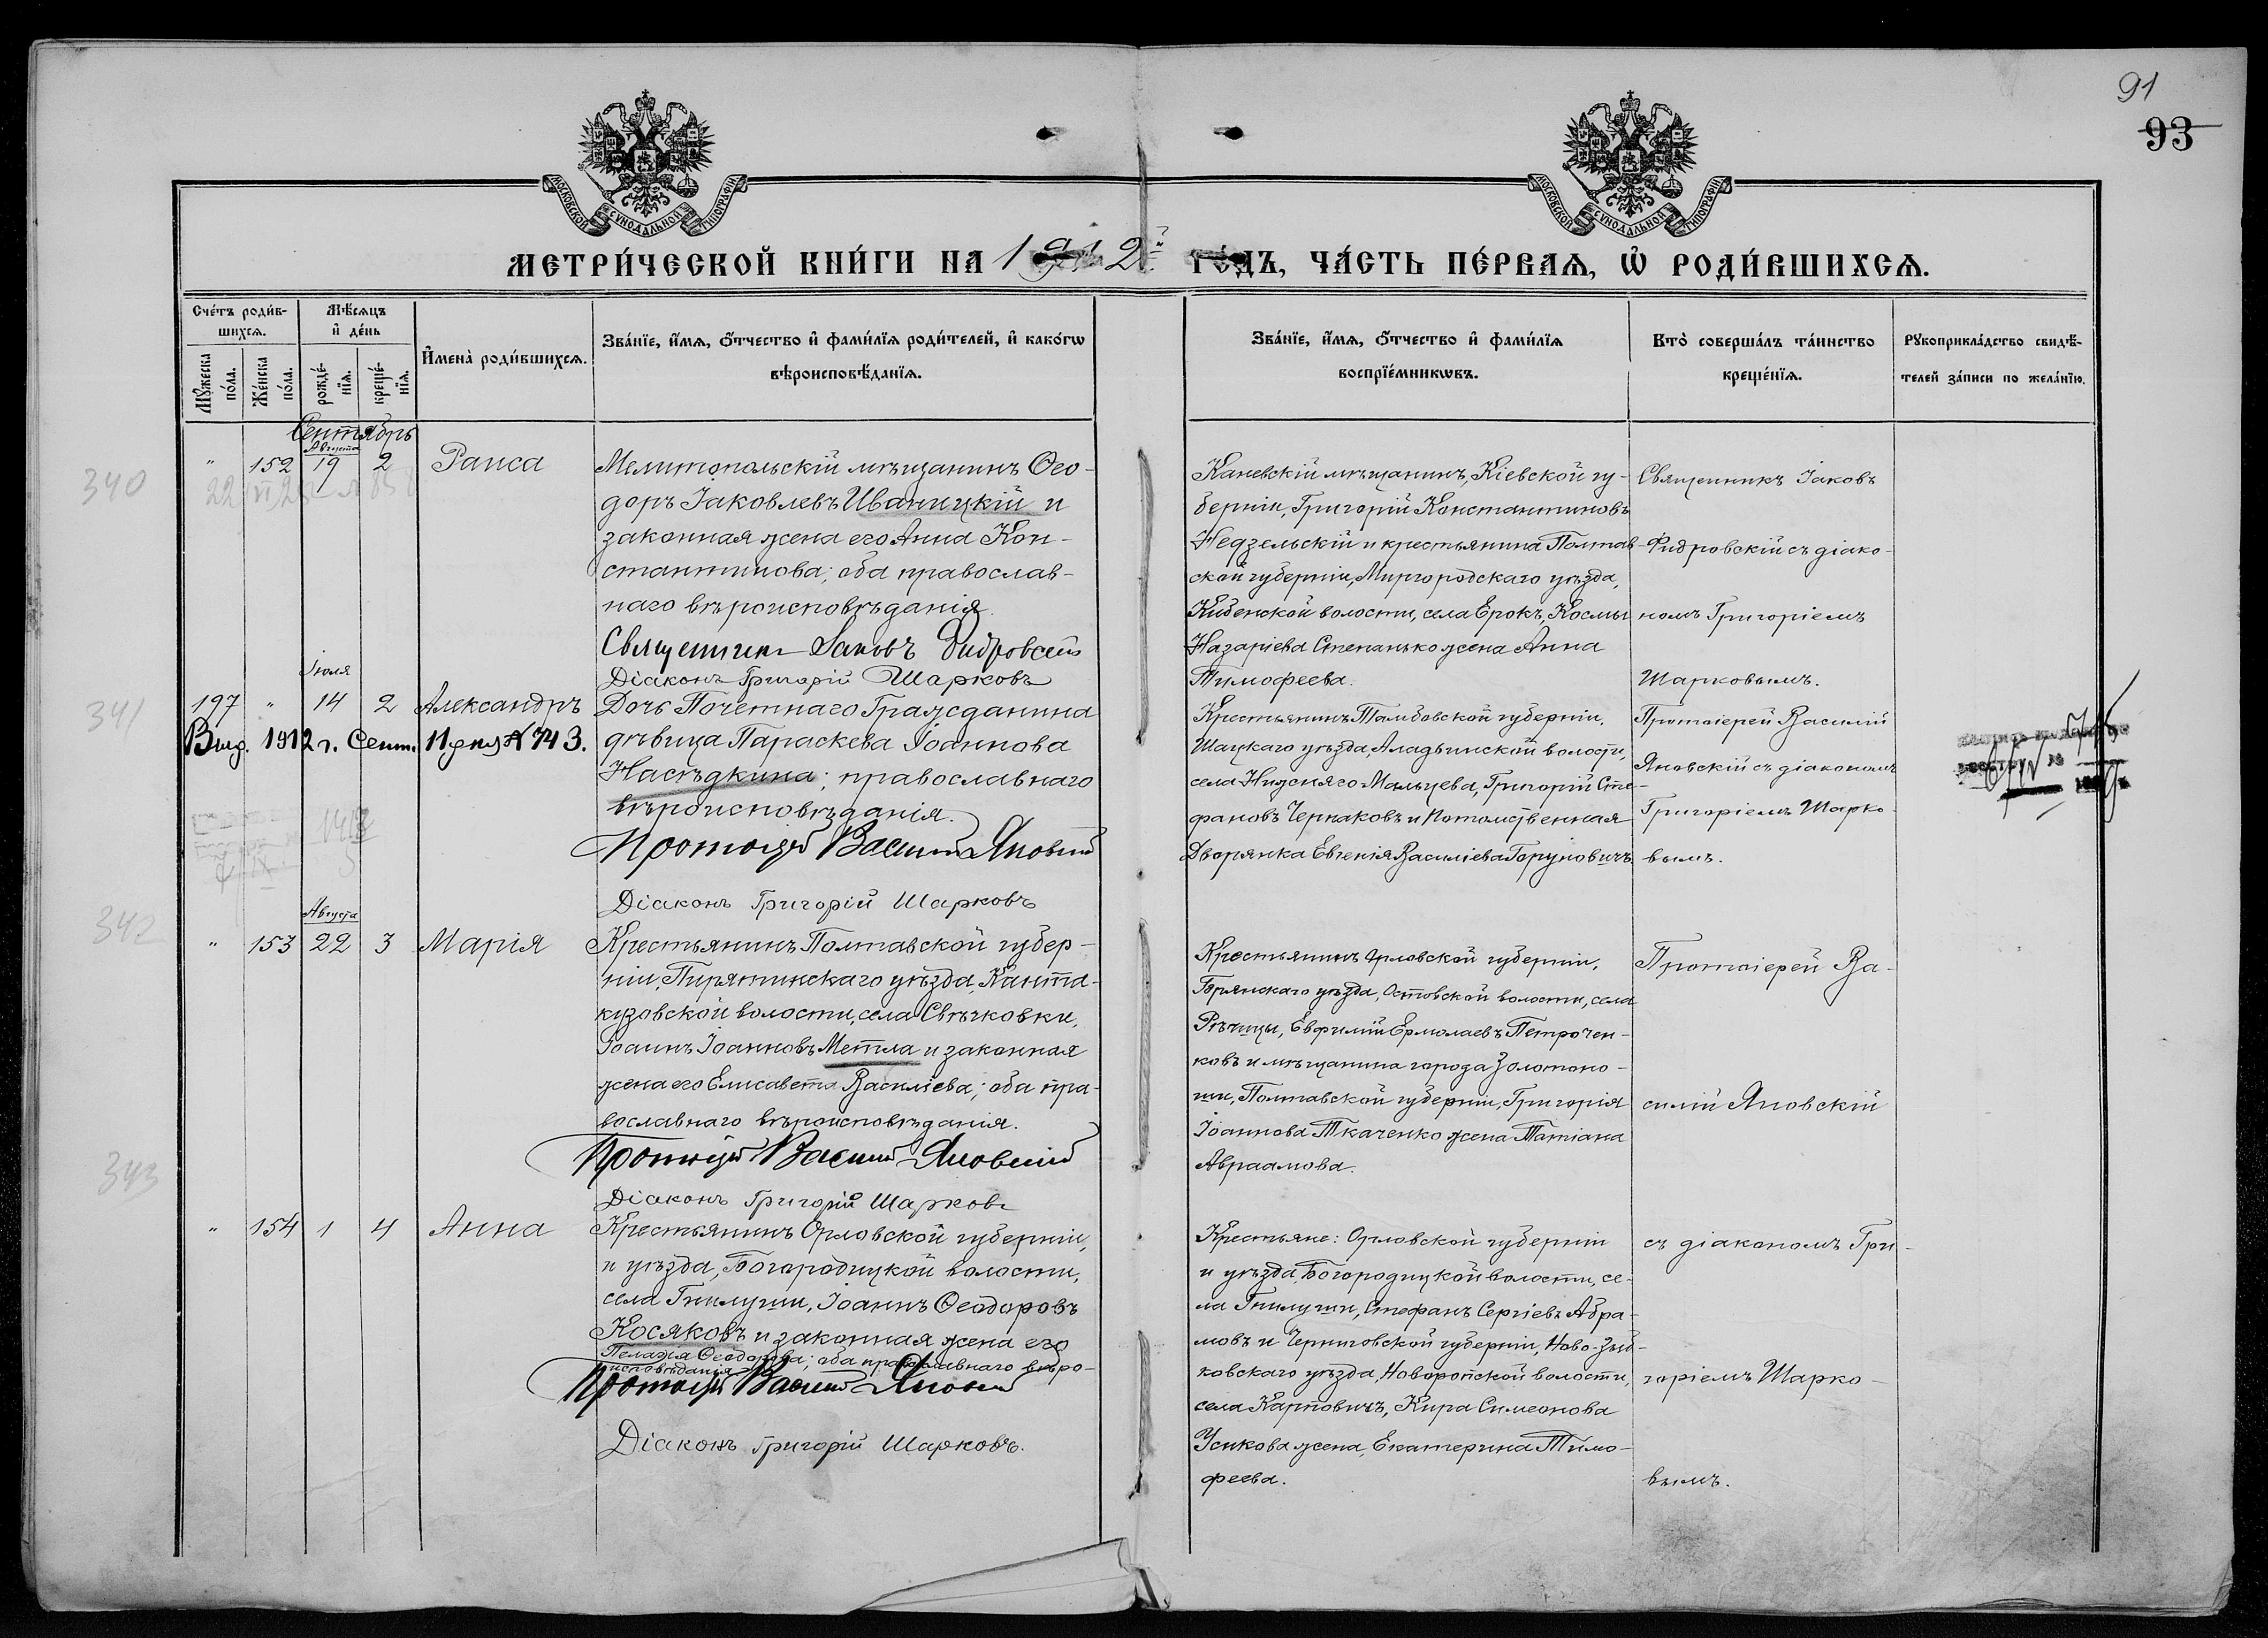 91
93
МОСКОВСКОЙ СѴНОДАЛЬНОЙ ТИПОГРАФІИ
МОСКОВСКОЙ СѴНОДАЛЬНОЙ ТИПОГРАФІИ
МЕТРИ́ЧЕСКОЙ КНИ́ГИ НА 1912й ГО́ДЪ, ЧА́СТЬ ПЕ́РВАѦ, Ѡ҆ РОДИ́ВШИХСѦ.
Сче́тъ роди́в-
шихсѧ.
Мѣ́сѧцъ
и҆ де́нь
Мꙋ́жеска
по́ла.
Же́нска
по́ла.
рожде́-
нїѧ.
креще́-
нїѧ.
И҆мена̀ роди́вшихсѧ.
Зва́нїе, и҆́мѧ, ѻ҆́тчество и҆ фами́лїѧ роди́телей, и҆ како́гѡ
вѣроисповѣ́данїѧ.
Зва́нїе, и҆́мѧ, ѻ҆́тчество и҆ фами́лїѧ
воспрїе́мникѡвъ.
Кто̀ соверша́лъ та́инство
креще́нїѧ.
Рꙋкоприкла́дство свидѣ́-
телей за́писи по жела́нїю.
Сентябрь
340
"
152
Августа
19
2
Раиса
Мелитопольскій мѣщанинъ Ѳео-
доръ Іаковлевъ Иваницкій и
законная жена его Анна Кон-
стантинова; оба православ-
наго вѣроисповѣданія.
Священникъ Іаковъ Фидровскій
Діаконъ Григорій Шарковъ
Каневскій мѣщанинъ, Кіевской гу-
берніи, Григорій Константиновъ
Недзельскій и крестьянина Полтав-
ской губерніи, Миргородскаго уѣзда,
Кибенской волости, села Ерокъ, Космы
Назаріева Степанько жена Анна
Тимофеева.
Священникъ Іаковъ
Фидровскій съ діако-
номъ Григоріемъ
Шарковымъ.
341
197
"
Іюля
14
2
Александръ
Выд. 1912 г. Сент. 11 дня № 743.
Дочь Почетнаго Гражданина
дѣвица Параскева Іоаннова
Насѣдкина; православнаго
вѣроисповѣданія.
Протоіерей Василій Яновскій
Діаконъ Григорій Шарковъ
Крестьянинъ Тамбовской губерніи,
Шацкаго уѣзда, Аладьинской волости,
села Нижняго Мальцева, Григорій Сте-
фановъ Чернаковъ и Потомственная
Дворянка Евгенія Василіева Горуновичъ.
Протоіерей Василій
Яновскій съ діакономъ
Григоріемъ Шарко-
вымъ.
342
"
153
Августа
22
3
Марія
Крестьянинъ Полтавской губер-
ніи, Пирятинскаго уѣзда, Канта-
кузовской волости, села Свѣчковки,
Іоаннъ Іоанновъ Метла и законная
жена его Елисавета Василіева; оба пра-
вославнаго вѣроисповѣданія.
Протоіерей Василій Яновскій
Діаконъ Григорій Шарковъ
Крестьянинъ Орловской губерніи,
Брянскаго уѣзда, Остовской волости, села
Рѣчицы, Евфимій Ермолаевъ Петрочен-
ковъ и мѣщанина города Золотоно-
ши, Полтавской губерніи, Григорія
Іоаннова Ткаченко жена Татіана
Авраамова.
Протоіерей Ва-
силій Яновскій
343
"
154
1
4
Анна
Крестьянинъ Орловской губерніи,
и уѣзда, Богородицкой волости,
села Гнилуши, Іоаннъ Ѳеодоровъ
Косяковъ и законная жена его
Пелагія Ѳеодорова; оба православнаго вѣро-
исповѣданія.
Протоіерей Василій Яновскій
Діаконъ Григорій Шарковъ.
Крестьяне: Орловской губерніи
и уѣзда, Богородицкой волости, се-
ла Гнилуши, Стефанъ Сергіевъ Абра-
мовъ и Черниговской губерніи, Ново-Зыб-
ковскаго уѣзда, Новоропской волости,
села Карповичъ, Кира Симеонова
Усикова жена, Екатерина Тимо-
феева.
съ діакономъ Гри-
горіемъ Шарко-
вымъ.